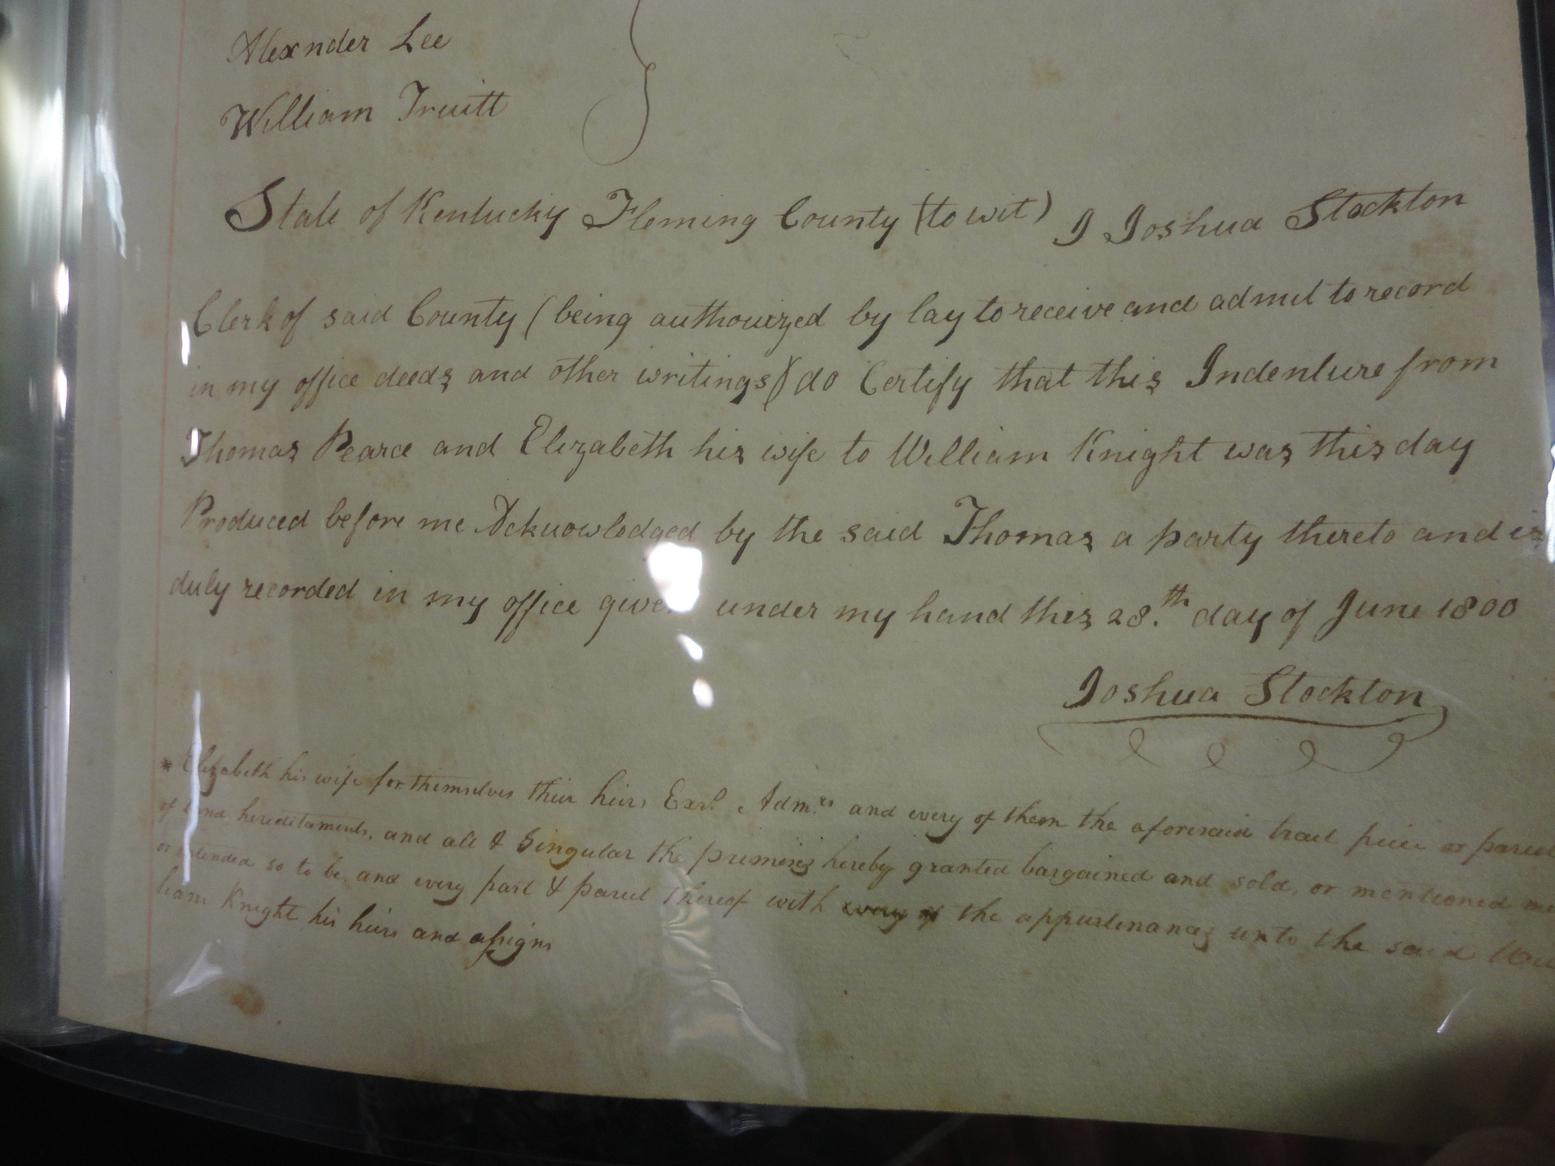 Alexnder Lee
William Truitt
State of Kentucky Fleming County (to wit) I Joshua Stockton
Clerk of said County (being authourized by lay to receive and admit to record
in my office deeds and other writings) do Certify that this Indenture from
Thomas Pearce and Elizabeth his wife to William Knight was this day
Produced before me Acknowledged by the said Thomas a party thereto and is
duly recorded in my office given under my hand this 28.th day of June 1800
Joshua Stockton
* Elizabeth his wife for themselves their heirs Exrs. Adm.rs and every of them the aforesaid tract piece or parcel
of land hereditaments, and all & Singular the premises hereby granted bargained and sold, or mentioned me
or intended so to be and every part & parcel thereof with every of the appurtenances unto the said Wil
liam Knight his heirs and assigns